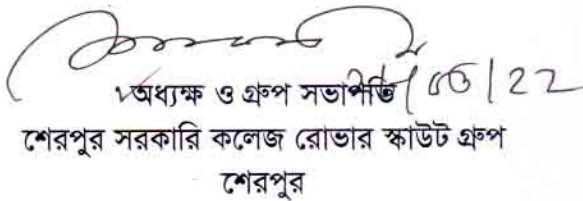 অধ্যক্ষ ও গ্রুপ সভাপতি
শেরপুর সরকারি কলেজ রোভার স্কাউট গ্রুপ
শেরপুর